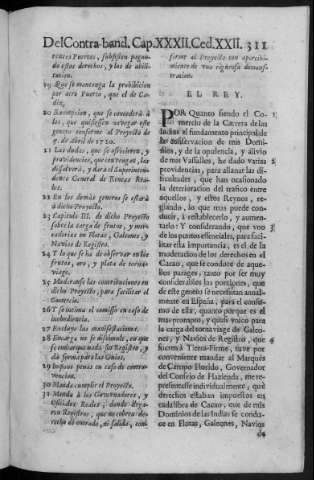 Del Contra-band. Cap. XXXII. Ced. XXII. 311
rentes Puertos, subsistan pagando
estos derechos, y los de abilitacion.
19 Que se mantenga la prohibicion
por otro Puerto, que el de Cadiz,
20 Excepcion, que se concederà à
los, que quisiessen navegar este
genero conforme al Proyecto de
5. de Abril de 1720.
21 Las dudas, que se ofrecieren, y
providencias, que convengan, las
dissolverà, y darà el Superintendente
General de Rentas Reales.
22 En los demàs generos se estarà
à dicho Proyecto.
23 Capitulo III. de dicho Proyecto
sobre la carga de frutos, y mercaderias
en Flotas, Galeones, y
Navios de Registro.
24 Y lo que se ha de observar en los
frutos, oro, y plata de tornaviage.
25 Moderanse las contribuciones en
dicho Proyecto, para facilitar el
Comercio.
26 Y se anima el comisso en caso de
inobediencia.
27 Excluye las manifestaciones.
28 Encarga no se dissimule, en que
se embarque nada sin Registro, y
dà forma para las Guias.
29 Impone penas en caso de contravencion.
30 Manda cumplir el Proyecto.
31 Manda à los Governadores, y
Oficiales Reales, donde llegaren
Registros, que no cobren derecho
de entrada, ni salida, conforme
al Proyecto con apercibimiento
de una rigurosa demonstracion.
EL REY.
POR Quanto siendo el Comercio 1
de la Carrera de las
Indias el fundamento principal de
la conservacion de mis Dominios,
y de la opulencia, y alivio
de mis Vassallos, he dado varias 2
providencias, para allanar las dificultades,
que han ocasionado
la deterioracion del trafico entre
aquellos, y estos Reynos, reglando,
lo que mas puede conducir,
à restablecerlo, y aumentarlo:
Y considerando, que uno 3
de los puntos essenciales, para facilitar
esta importancia, es el de la
moderacion de los derechos en el
Cacao, que se conduce de aquellos
parages, tanto por ser muy
considerables las porciones, que
de este genero se necesitan anualmente
en España, para el consumo
de ella, quanto porque es el
mas prompto, y quasi unico para
la carga del tornaviage de Galeones,
y Navios de Registro, que 4
fueren à Tierra-Firme, tuve por
conveniente mandar al Marquès
de Campo Florido, Governador
del Consejo de Hazienda, me representasse
individualmente, què
derechos estaban impuestos en
cada libra de Cacao, que de mis
Dominios de las Indias se conduce
en Flotas, Galeones, Navios
de